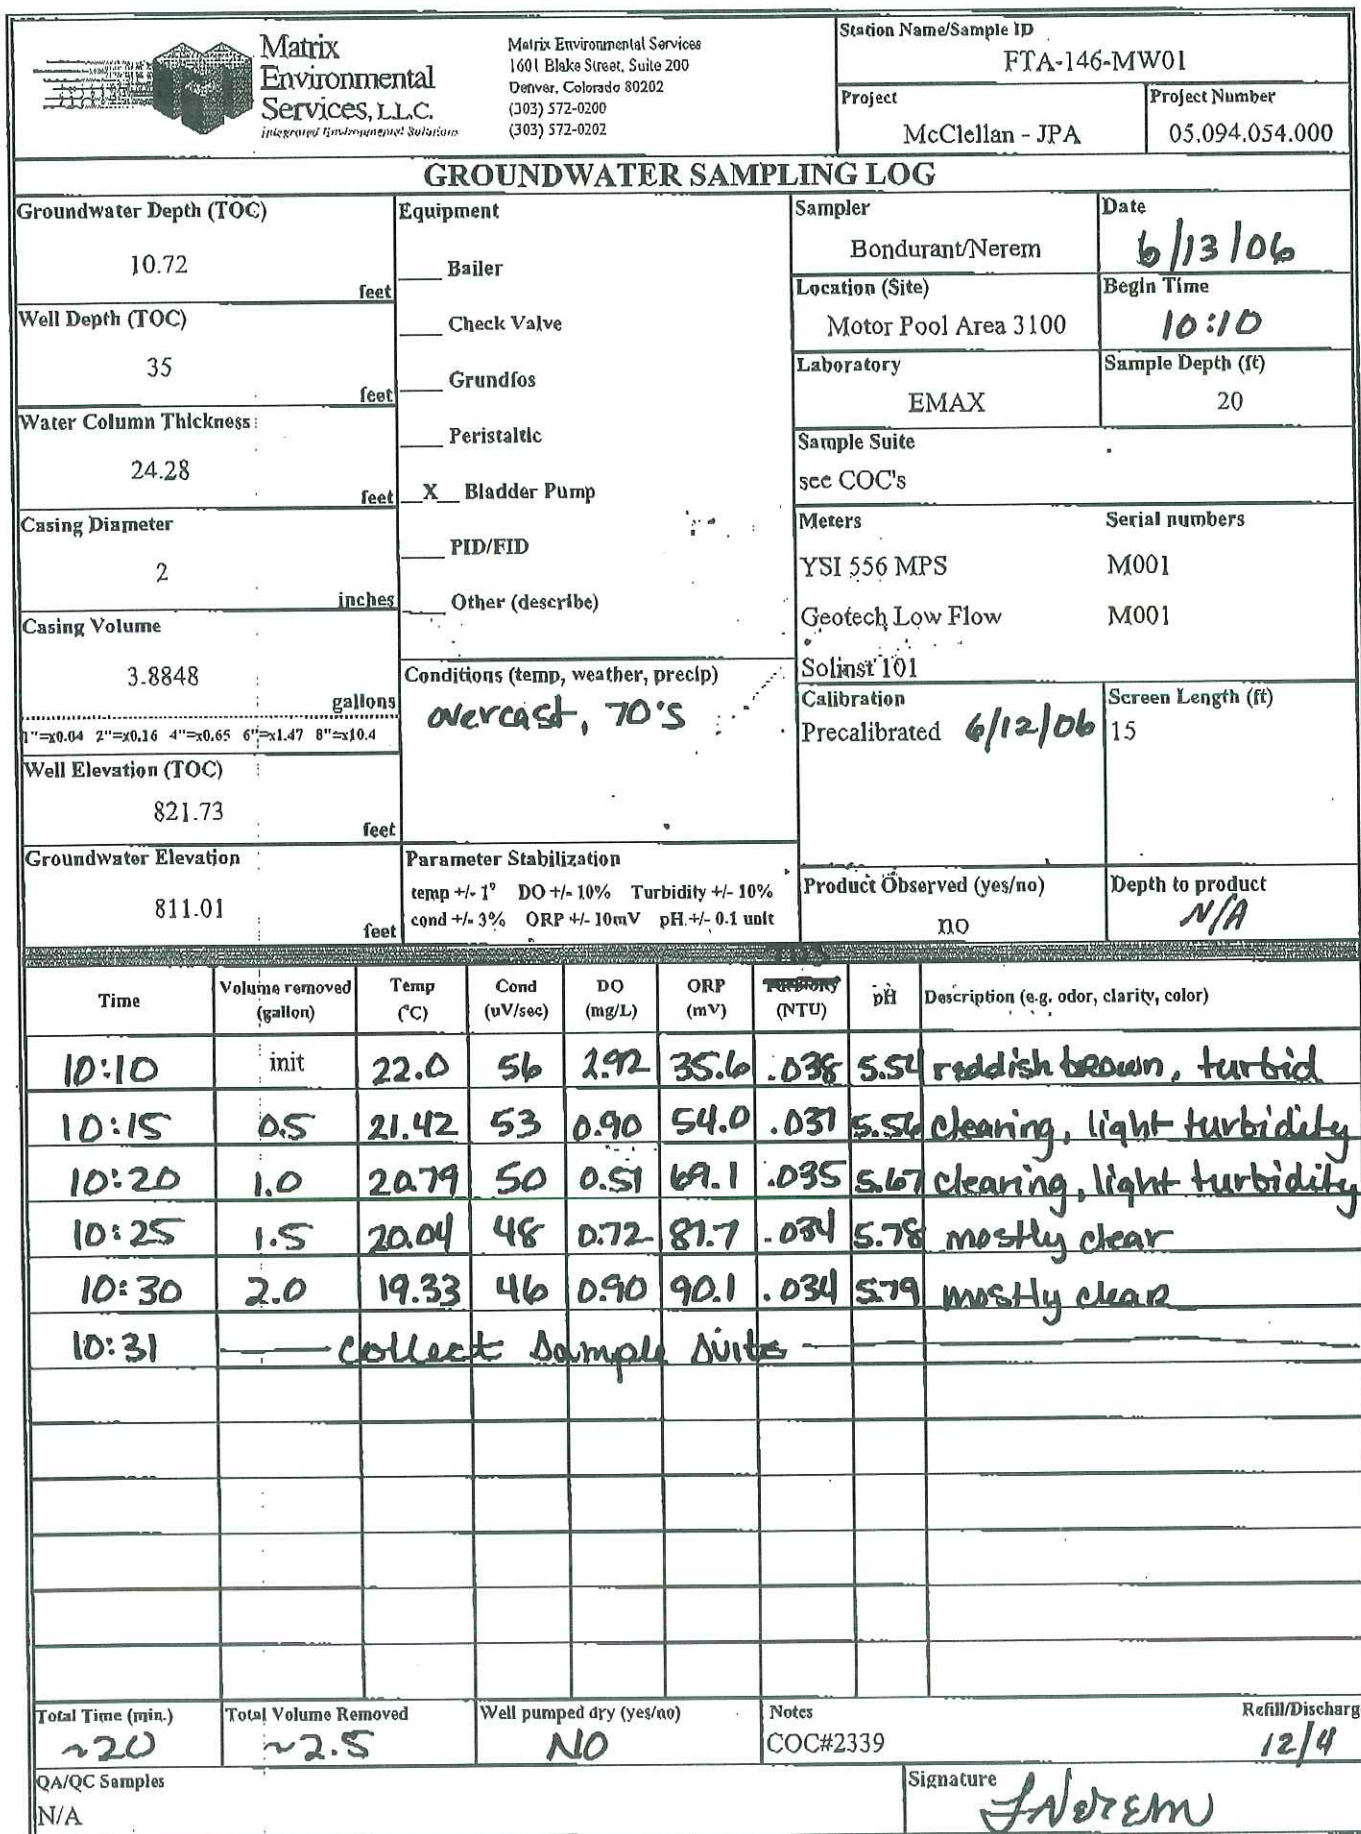 Matrix
Environmental
Services, L.L.C.
Integrated Environmental Solutions
Matrix Environmental Services
1601 Blake Street, Suite 200
Denver, Colorado 80202
(303) 572-0200
(303) 572-0202
Station Name/Sample ID
FTA-146-MW01
Project
McClellan - JPA
Project Number
05.094.054.000
GROUNDWATER SAMPLING LOG
Groundwater Depth (TOC)
10.72
feet
Well Depth (TOC)
35
feet
Water Column Thickness
24.28
feet
Casing Diameter
2
inches
Casing Volume
3.8848
gallons
1"=x0.04 2"=x0.16 4"=x0.65 6"=x1.47 8"=x10.4
Well Elevation (TOC)
821.73
feet
Groundwater Elevation
811.01
feet
Equipment
___ Bailer
___ Check Valve
___ Grundfos
___ Peristaltic
__X__ Bladder Pump
___ PID/FID
___ Other (describe)
Conditions (temp, weather, precip)
overcast, 70's
Parameter Stabilization
temp +/- 1° DO +/- 10% Turbidity +/- 10%
cond +/- 3% ORP +/- 10mV pH +/- 0.1 unit
Sampler
Bondurant/Nerem
Date
6/13/06
Location (Site)
Motor Pool Area 3100
Begin Time
10:10
Laboratory
EMAX
Sample Depth (ft)
20
Sample Suite
see COC's
Meters Serial numbers
YSI 556 MPS M001
Geotech Low Flow M001
Solinst 101
Calibration
Precalibrated 6/12/06
Screen Length (ft)
15
Product Observed (yes/no)
no
Depth to product
N/A
Time Volume removed (gallon) Temp (°C) Cond (uV/sec) DO (mg/L) ORP (mV) Turbidity (NTU) pH Description (e.g. odor, clarity, color)
10:10 init 22.0 56 2.92 35.6 .038 5.54 reddish brown, turbid
10:15 0.5 21.42 53 0.90 54.0 .037 5.56 clearing, light turbidity
10:20 1.0 20.79 50 0.51 69.1 .035 5.67 clearing, light turbidity
10:25 1.5 20.04 48 0.72 87.7 .034 5.78 mostly clear
10:30 2.0 19.33 46 0.90 90.1 .034 5.79 mostly clear
10:31 collect sample suite
Total Time (min.)
~20
Total Volume Removed
~2.5
Well pumped dry (yes/no)
NO
Notes
COC#2339
Refill/Discharg
12/4
QA/QC Samples
N/A
Signature
JNerem